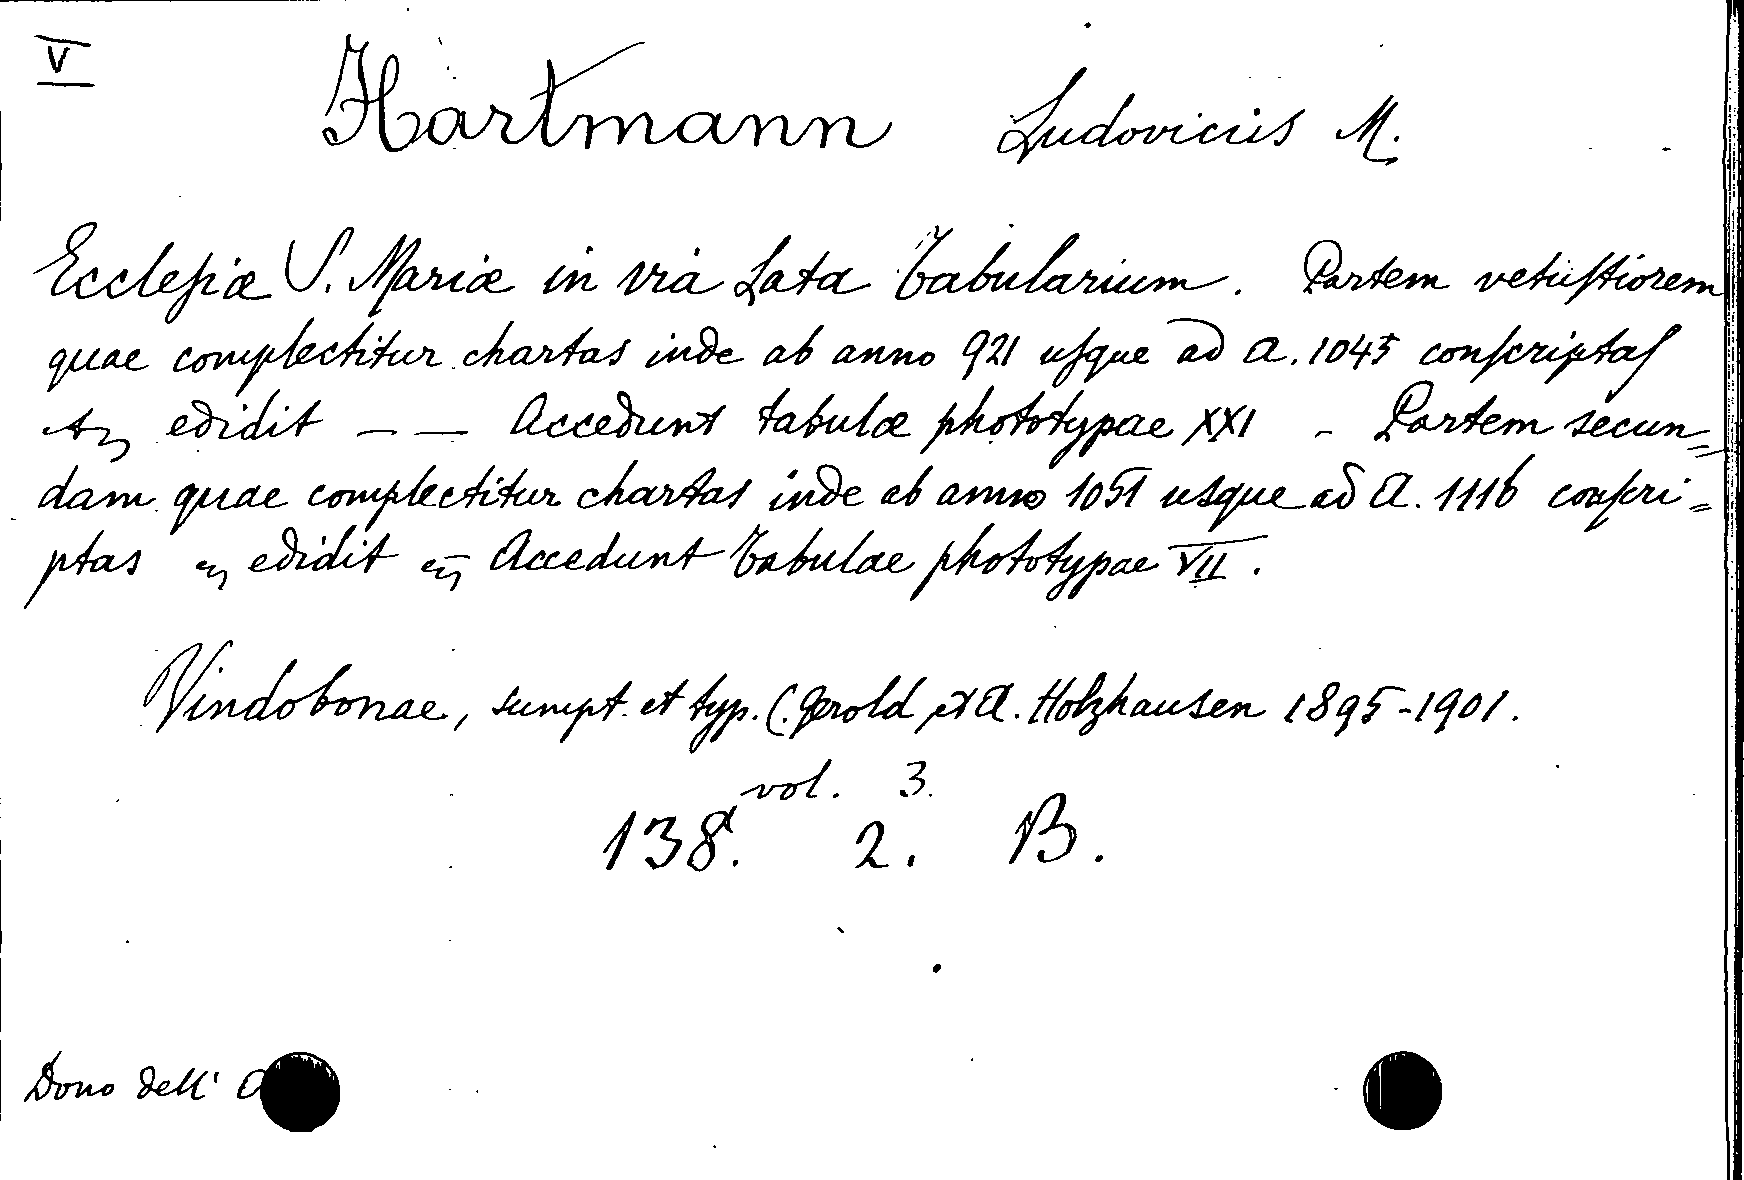 V
Hartmann Ludovicus M.
Ecclesiæ S. Mariæ in via Lata Tabularium. Partem vetustiorem
quae complectitur chartas inde ab anno 921 usque ad a. 1045 conscriptas
edidit — — Accedunt tabulæ phototypae XXI - Partem secun=
dam quae complectitur chartas inde ab anno 1051 usque ad a. 1116 conscri=
ptas edidit Accedunt Tabulae phototypae VII.
Vindobonae, sumpt. et typ. C. Gerold et A. Holzhausen 1895-1901.
vol. 3.
138. 2. B.
Dono dell'